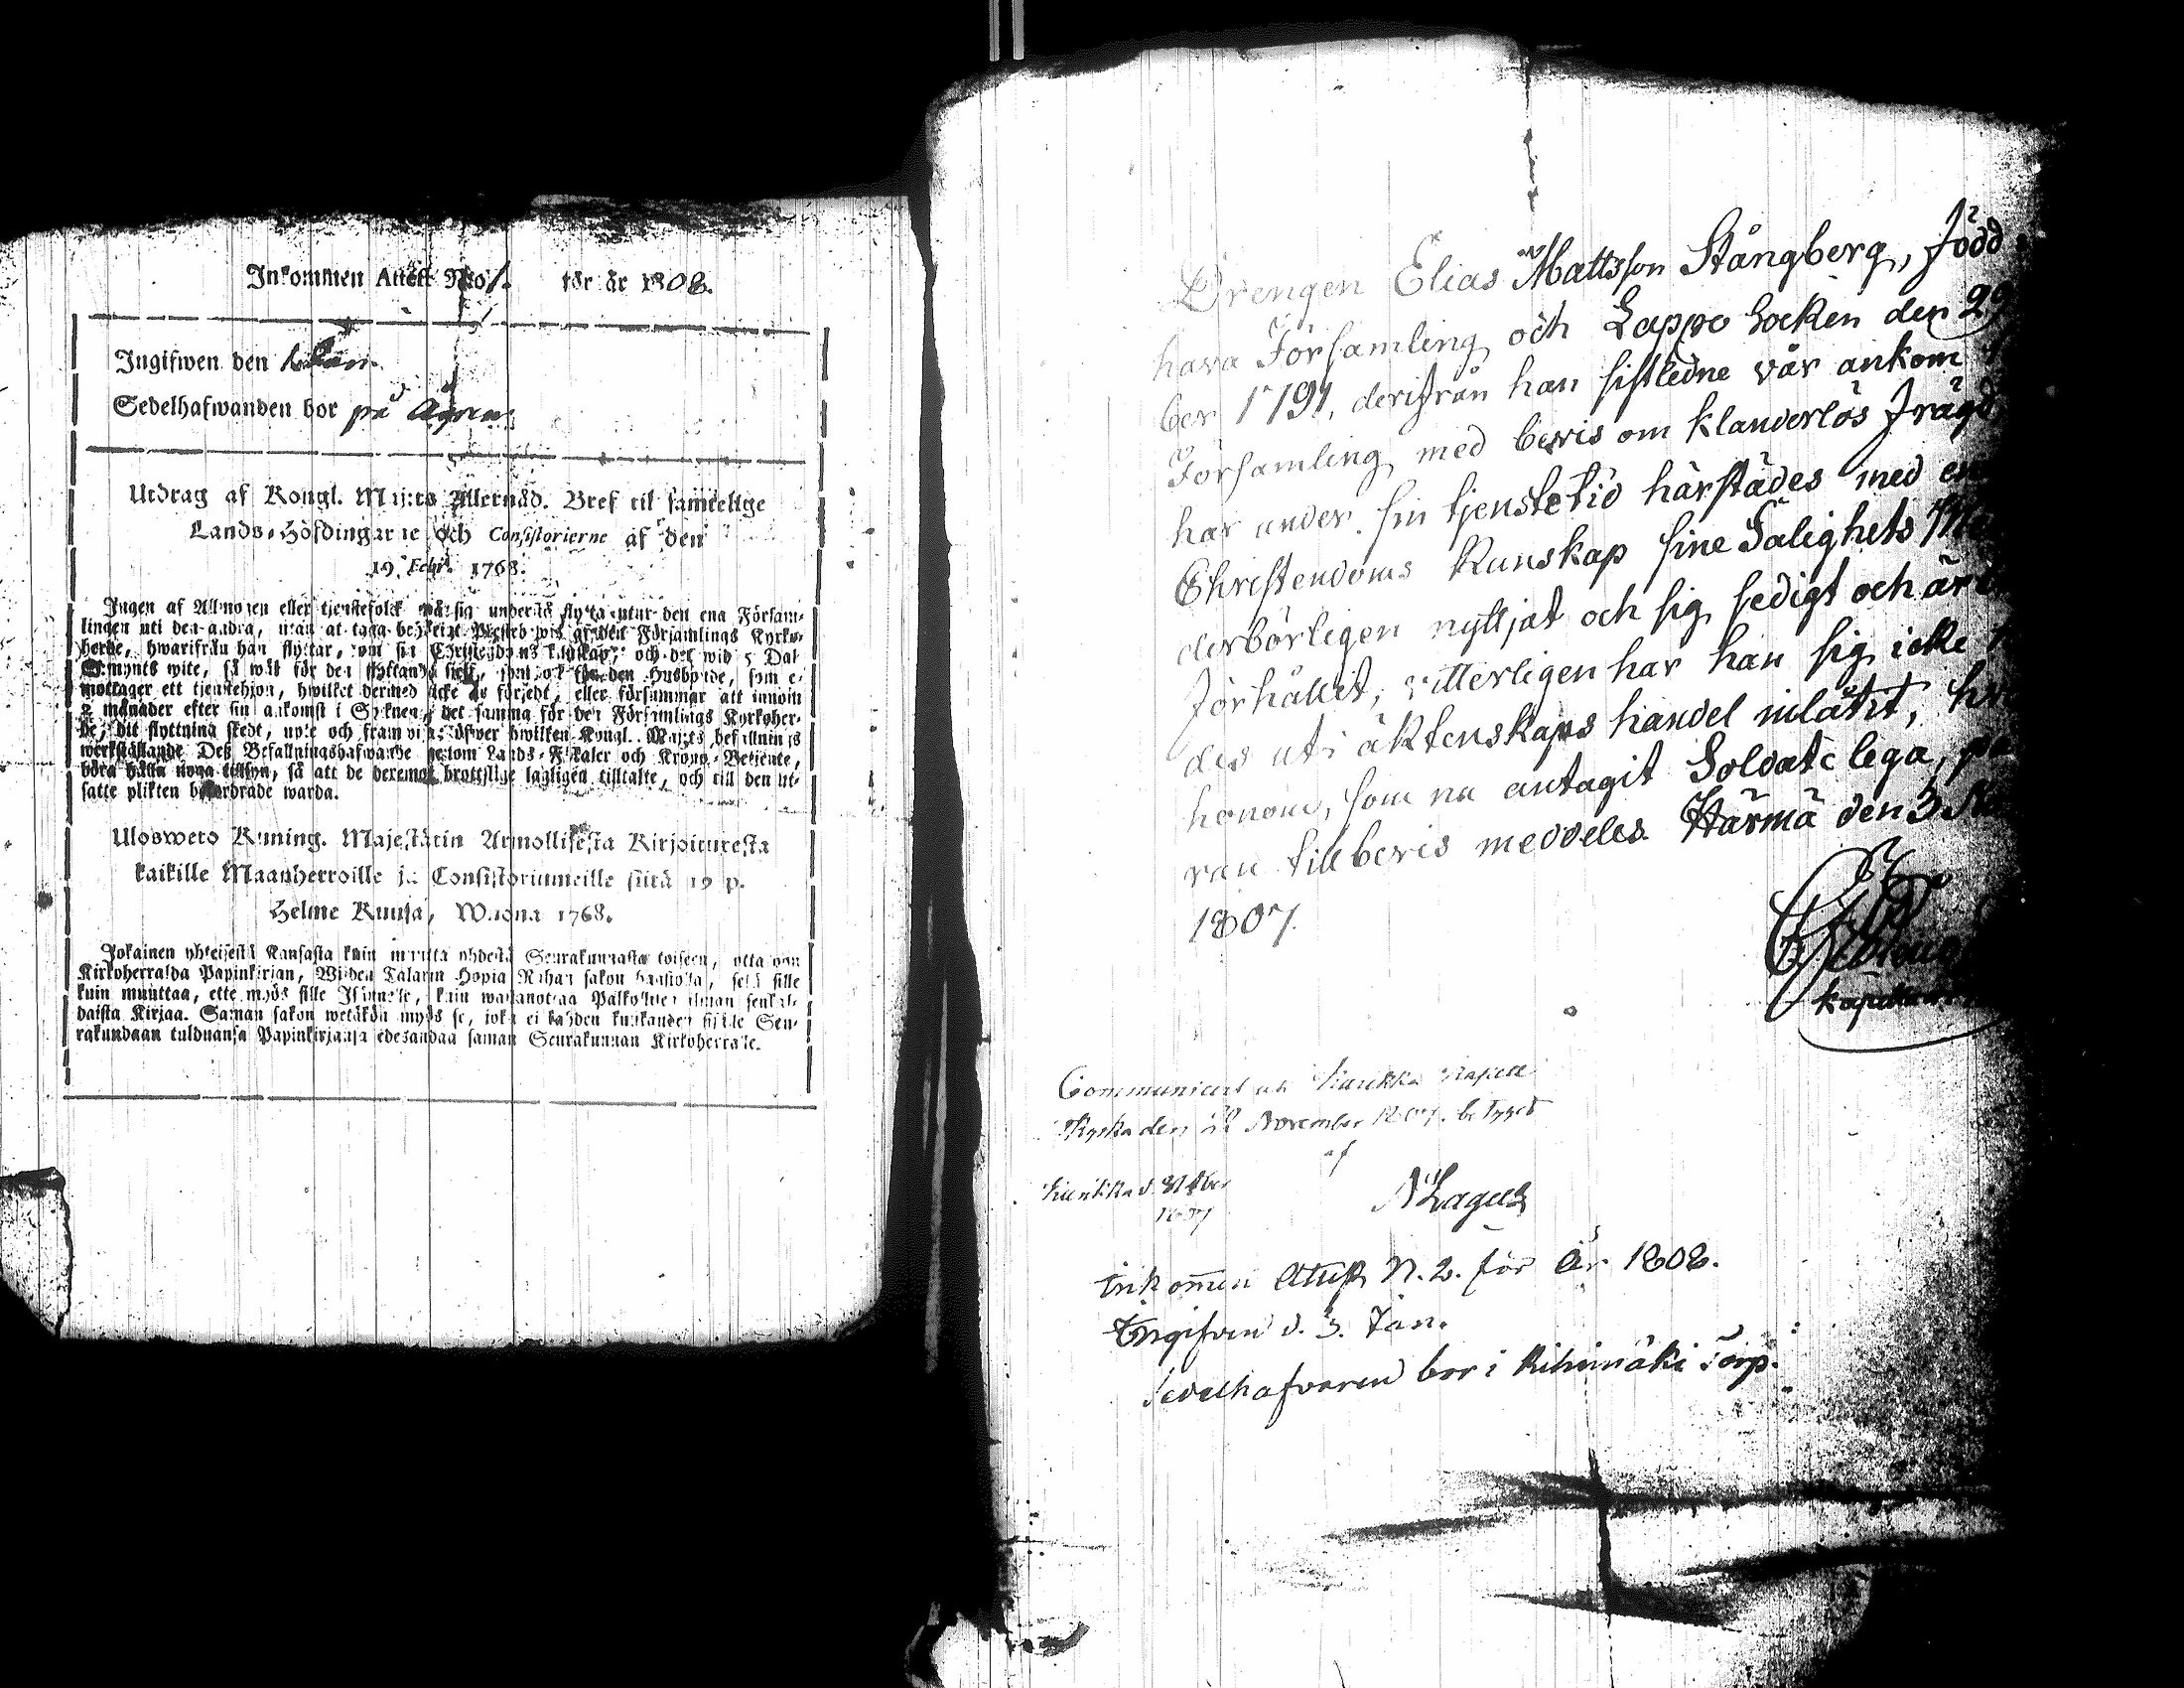 Inkommen Attest No 1. för år 1808.
Ingifwen den
Sedelhafwanden bor på
Utdrag af Kongl. Maj:ts Allernåd. Bref til samtelige
Lands-Höfdingarne och Consistorierne af den
19 Febr. 1768.
Ingen af Allmogen eller tjenstefolck må sig understå flytta utur den ena Försam-
lingen uti den andra, utan at taga behörigt Prestebewis af den Församlings Kyrko-
herde, hwarifrån han flyttar, om sin Christendoms kunskap, och det wid 5 Dal
S:mynts wite, så wäl för den flyttande sielf, som ock för den Husbonde, som e-
mottager ett tjenstehjon, hwilket dermed icke är försedt, eller försummar att innom
2 månader efter sin ankomst i Soknen, det samma för den Församlings Kyrkoher-
de, dit flyttning skedt, upte och framwisa: öfwer hwilken Kongl. Maj:ts befallning
werkställande Deß Befallningshafwande genom Lands-Fiskaler och Krono-Betjente,
böra hålla noga tillsyn, så att de deremot brottslige lagligen tilltalte, och till den ut-
satte plikten befordrade warda.
Ulosweto Kuning. Majestätin Armollisesta Kirjoituresta
kaikille Maanherroille ja Consistoriumeille siitä 19 p.
Helme Kuusa, Wuona 1768.
Jokainen yhteisestä Kansasta kuin muutta yhdestä Seurakunnasta toiseen, otta
Kirkoherralda Papinkirjan, Wiiden Talarin Hopia Rahan sakon haastolla, sekä sille
kuin muuttaa, ette myös sille Isännelle, kuin wastanottaa Palkollisen ilman senkal-
daista Kirjaa. Saman sakon wetäkön myös se, joka ei kahden kuukauden sisälle Seu-
rakundaan tulduansa Papinkirjaansa edesandaa saman Seurakunnan Kirkoherralle.
Drengen Elias Mattsson Stångberg, född
hava Församling och Lappo Socken den 29
ber 1791, derifrån han sistledne vår ankom
Församling med bevis om klanderlös frägd
har under sin tjenstetid härstädes med en
Christendoms Kunskap sine Salighets Me
derbörligen nyttjat och sig sedigt och är
förhållit, vitterligen har han sig icke
des uti äktenskaps handel inlåtit, hv
honom, som nu antagit Soldate lega, på
ran till bevis meddeles. Härmä den 3
1807.
Kapellan
Communicerat uti Kurikka Kapell
Kyrka den 22 November 1807. betyger
af
Kurikka d.
1807
Lagus
Inkommen Attest N. 2. för År 1808.
Ingifven d. 3. Jan.
Sedelhafvaren bor i Rihimäki Torp.